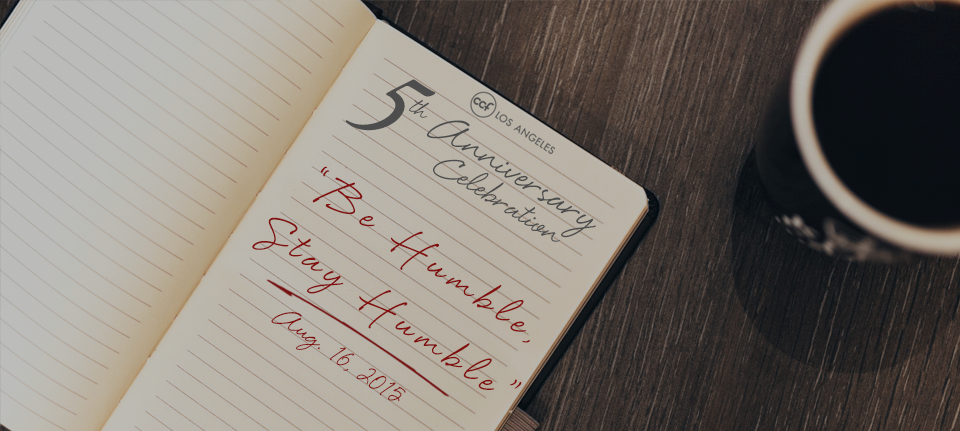 ccf LOS ANGELES
5th Anniversary
Celebration
"Be Humble,
Stay Humble"
Aug. 16, 2015